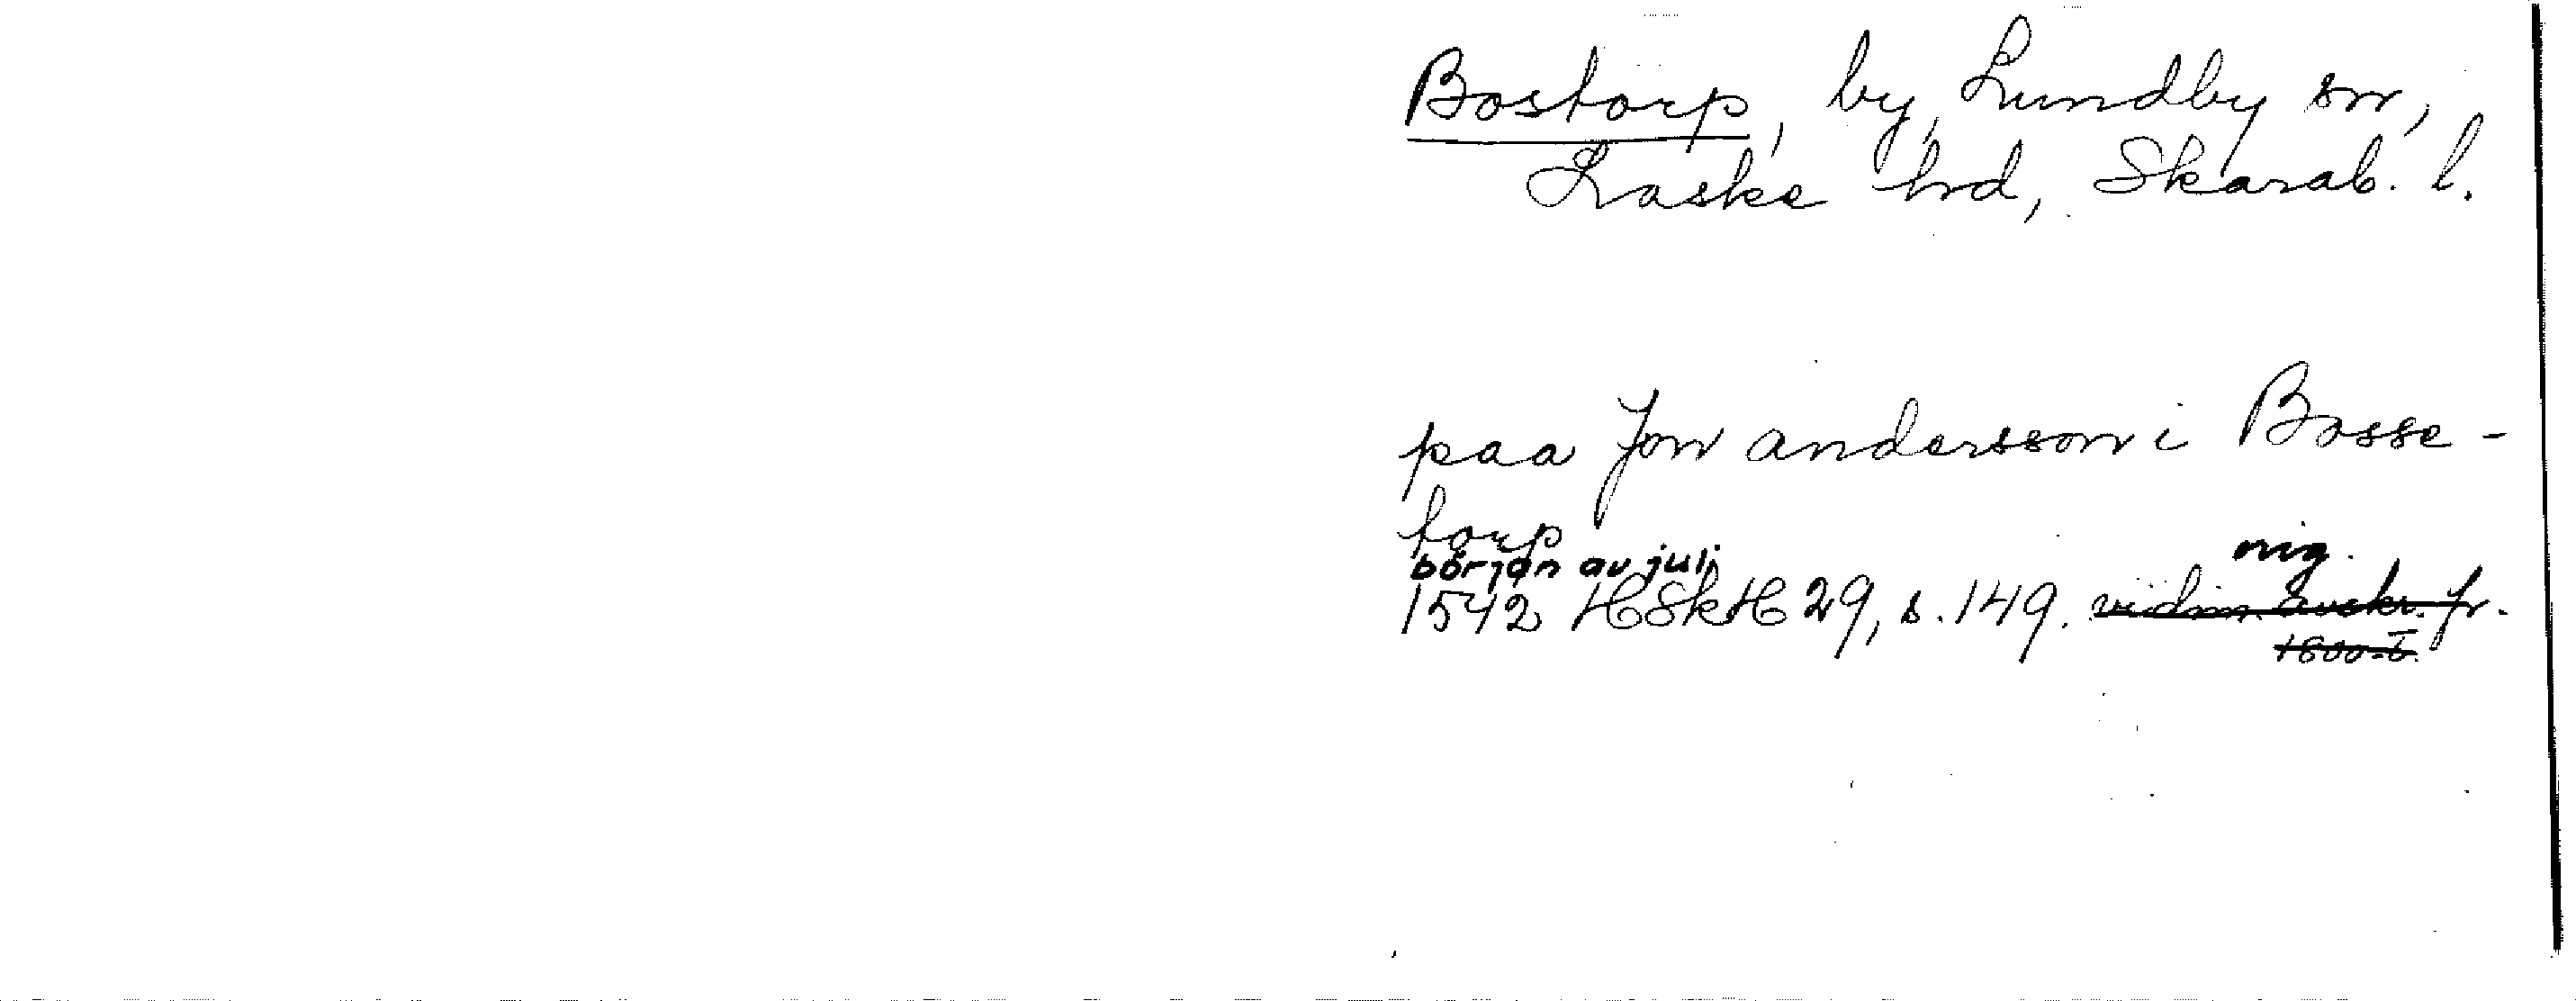 Bostorp, by, Lundby sn,
Laske hd, Skarab. l.
paa Jon andersson i Bosse-
torp
början av juli
orig.
1542 HSkH 29, s. 149. vidim. avskr. fr.
1600-t.